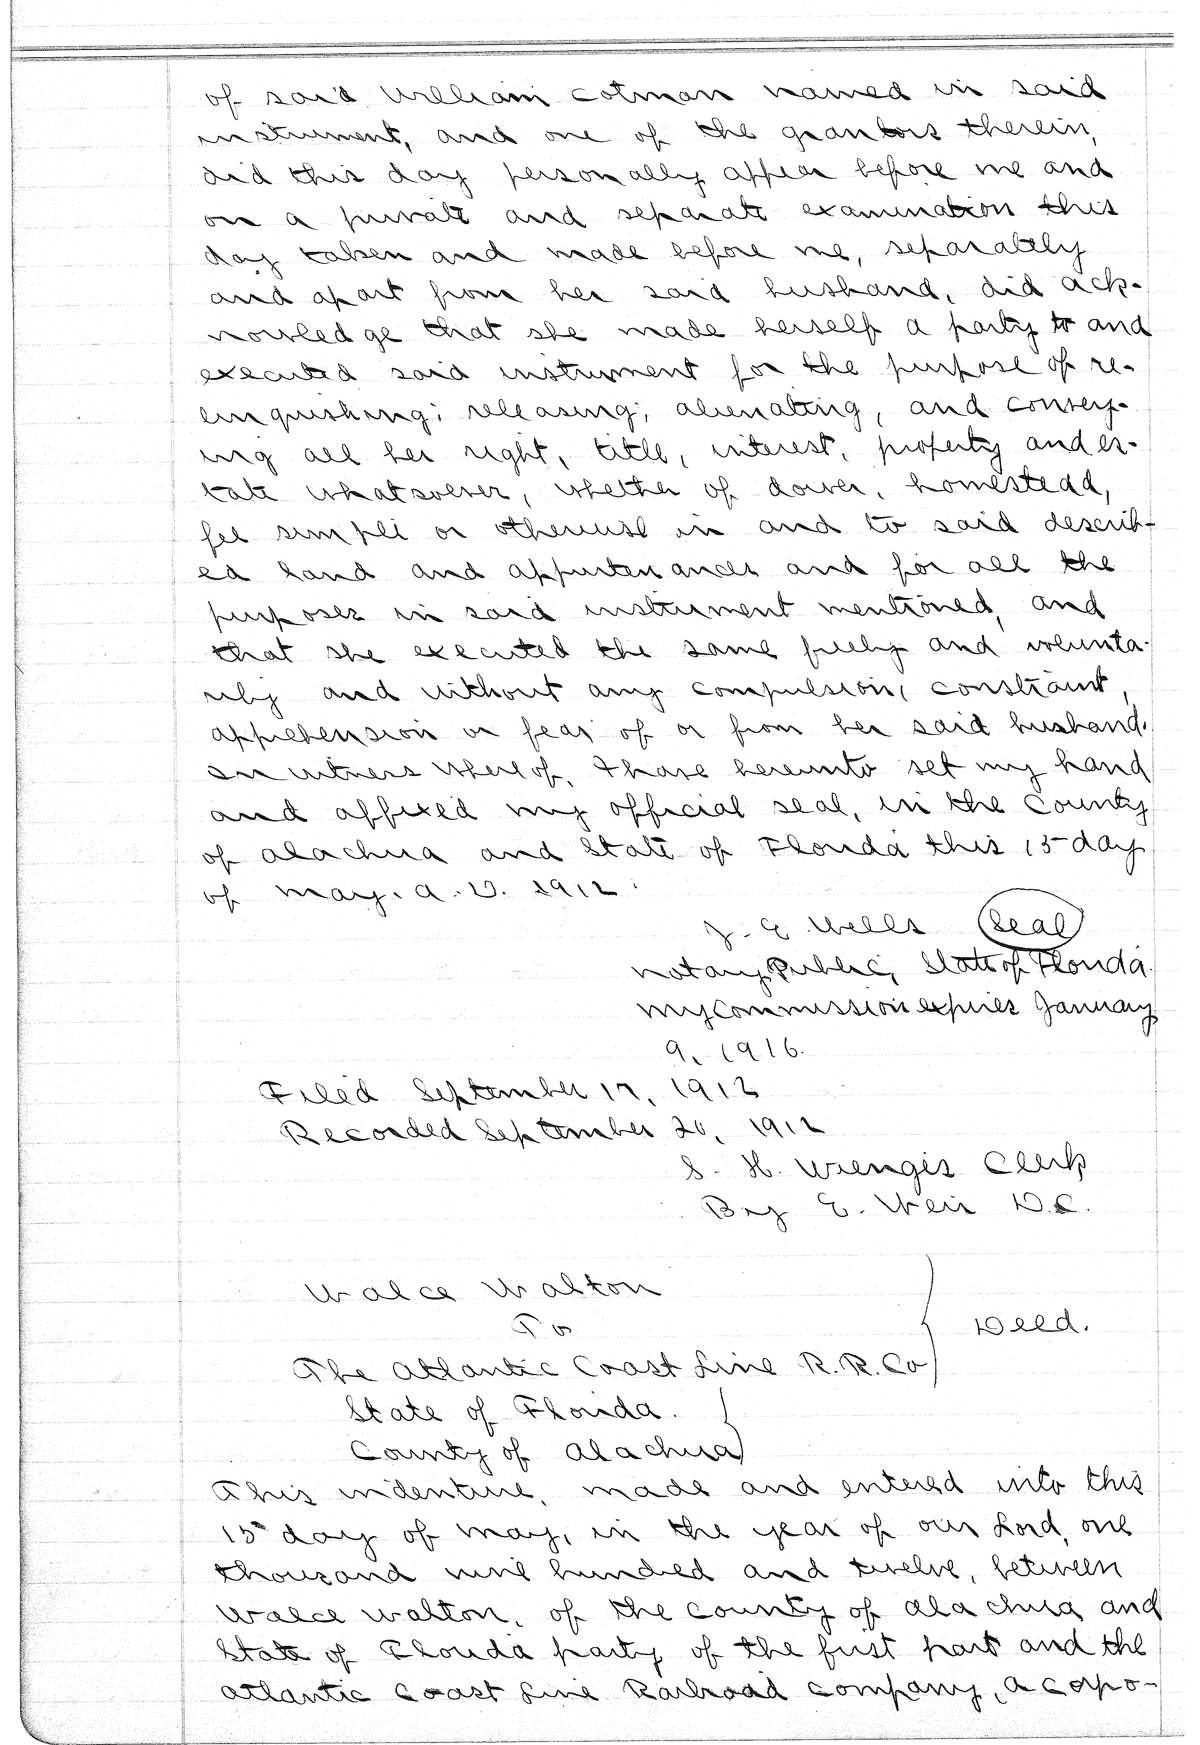 of said William Cotman named in said
instrument, and one of the grantors therein,
did this day personally appear before me and
on a private and separate examination this
day taken and made before me, separately
and apart from her said husband, did ack-
nowledge that she made herself a party to and
executed said instrument for the purpose of re-
linquishing, releasing, alienating, and convey-
ing all her right, title, interest, property and es-
tate whatsoever, whether of dower, homestead,
fee simple or otherwise in and to said describ-
ed land and appurtenances and for all the
purposes in said instrument mentioned, and
that she executed the same freely and volunta-
rily and without any compulsion, constraint,
apprehension or fear of or from her said husband.
In witness whereof, I have hereunto set my hand
and affixed my official seal, in the County
of Alachua and State of Florida this 15 day
of May. A. D. 1912.
J. E. Wells Seal
Notary Public, State of Florida.
My Commission expires January
9, 1916.
Filed September 17, 1912
Recorded September 20, 1912
S. H. Wienges Clerk
By E. Weir D.C.
Walce Walton
To
Deed.
The Atlantic Coast Line R.R. Co
State of Florida.
County of Alachua
This indenture, made and entered into this
15 day of May, in the year of our Lord, one
thousand nine hundred and twelve, between
Walce Walton, of the County of Alachua and
State of Florida party of the first part and the
Atlantic Coast Line Railroad Company, a corpo-